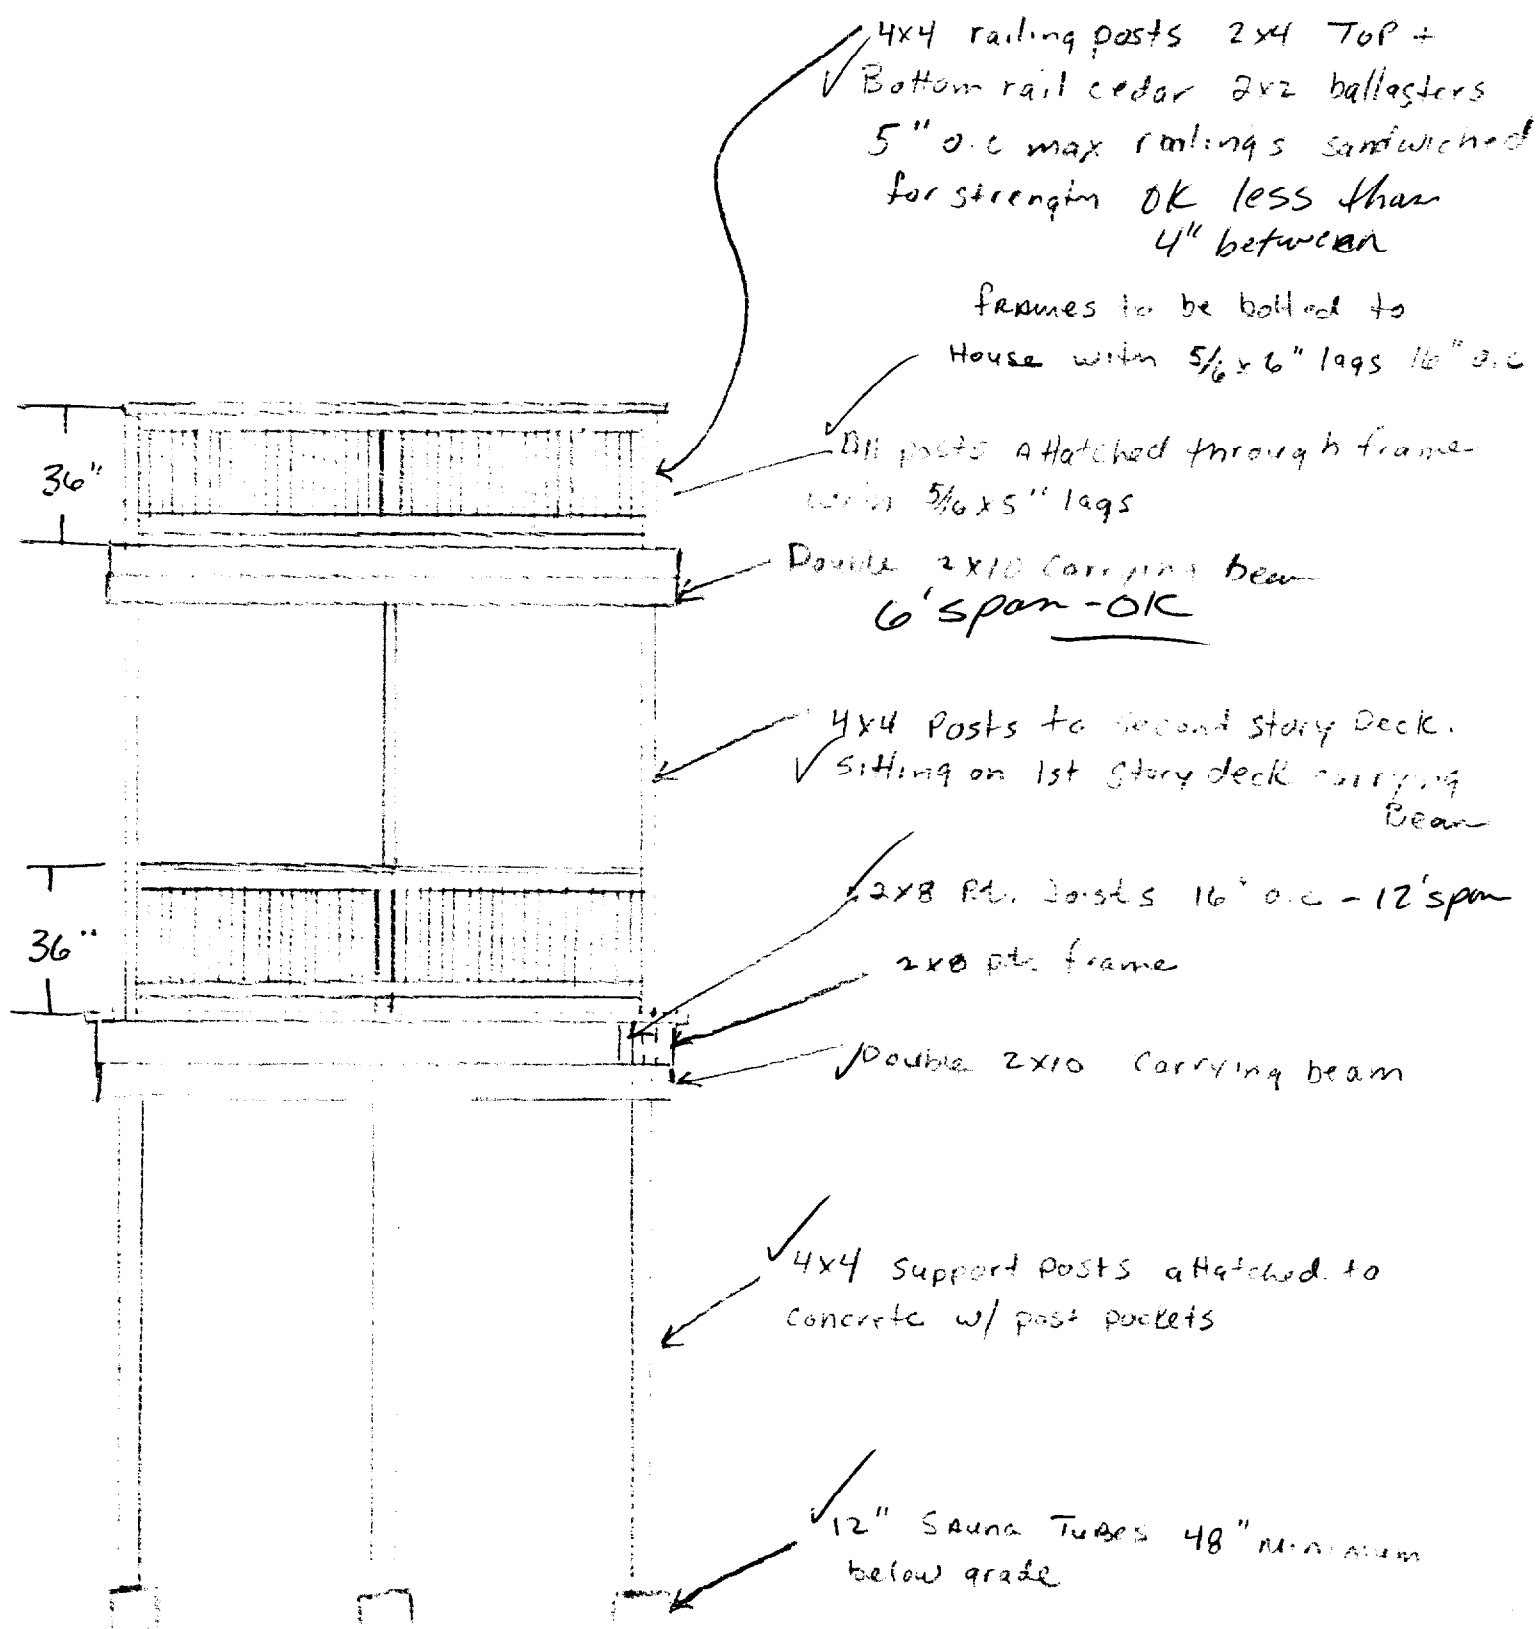 4x4 railing posts 2x4 TOP +
Bottom rail cedar 2x2 ballasters
5" o.c max railings sandwiched
for strength OK less than
4" between
frames to be bolted to
House with 5/6 x 6" lags 16" o.c
36"
All posts Attatched through frame
with 5/6 x 5" lags
Double 2x10 Carrying beam
6' span - OK
4x4 Posts to Second Story Deck.
Sitting on 1st Story deck carrying
Beam
36"
2x8 Pt. Joists 16" o.c - 12' span
2x8 pt. frame
Double 2x10 Carrying beam
4x4 Support Posts attatched to
concrete w/ post pockets
12" Sauna Tubes 48" Minimum
below grade